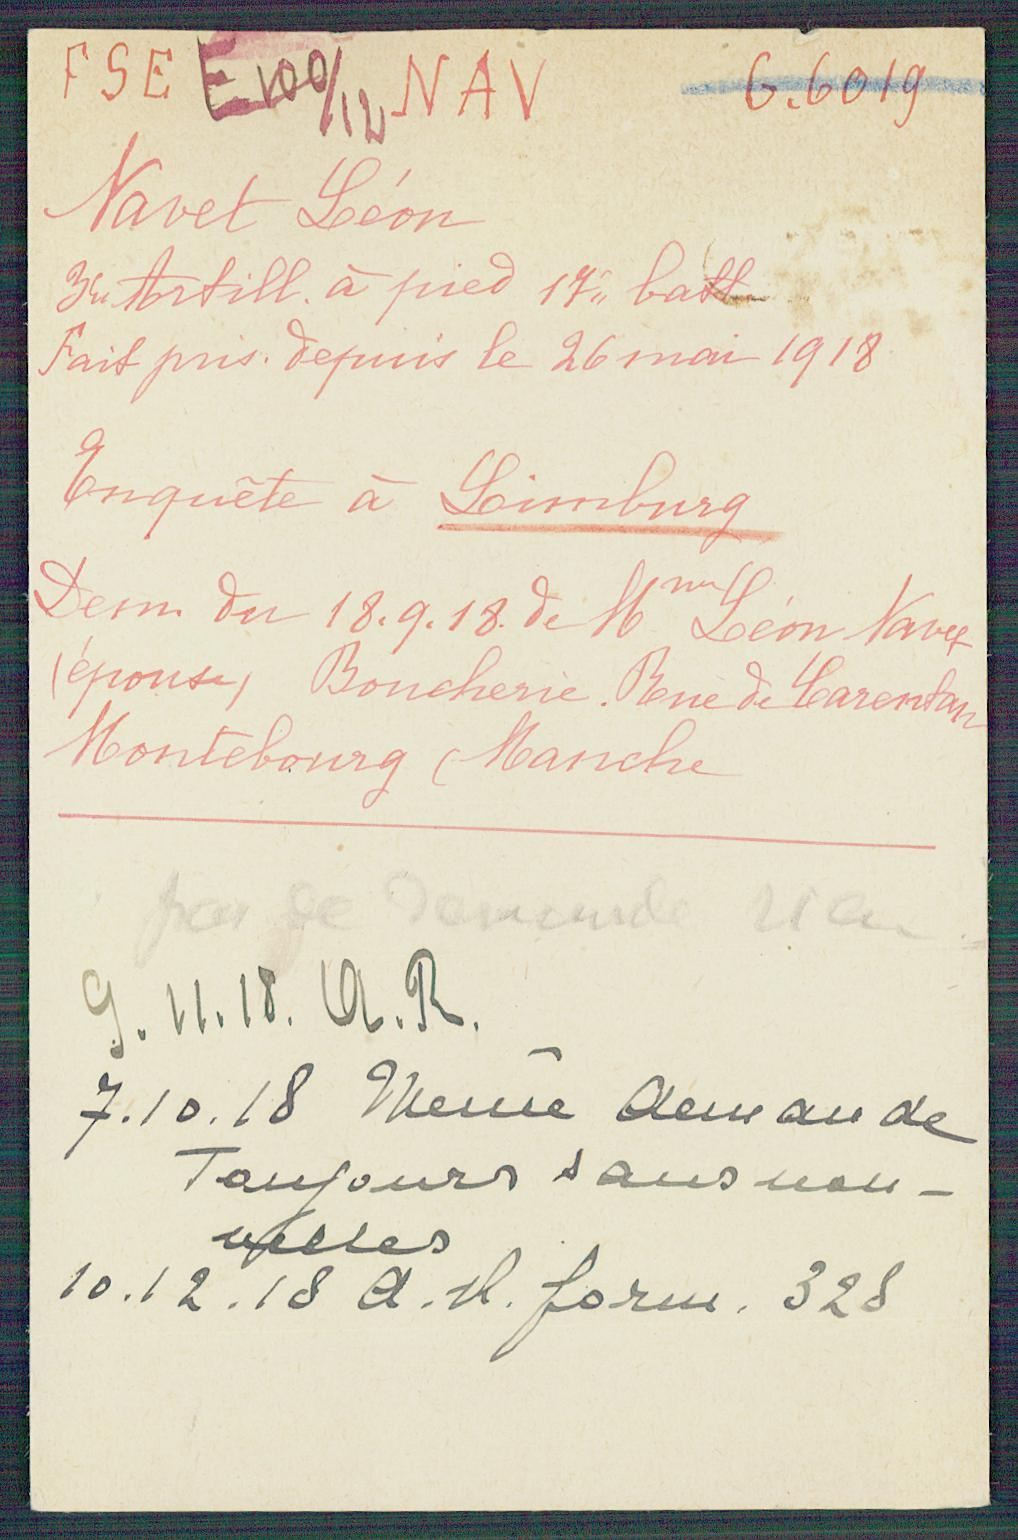 FSE E 100/12 NAV G.6019
Navet Léon
3e Artill. à pied 17e batt
Fait pris. depuis le 26 mai 1918
Enquête à Limburg
Dem. du 18.9.18. de Mme Léon Navet
(épouse) Boucherie. Rue de Carentan
Montebourg (Manche
pas de demande
9.11.18. A.R.
7.10.18 Meme demande
Toujours sans nou-
velles
10.12.18 A.N. form. 328